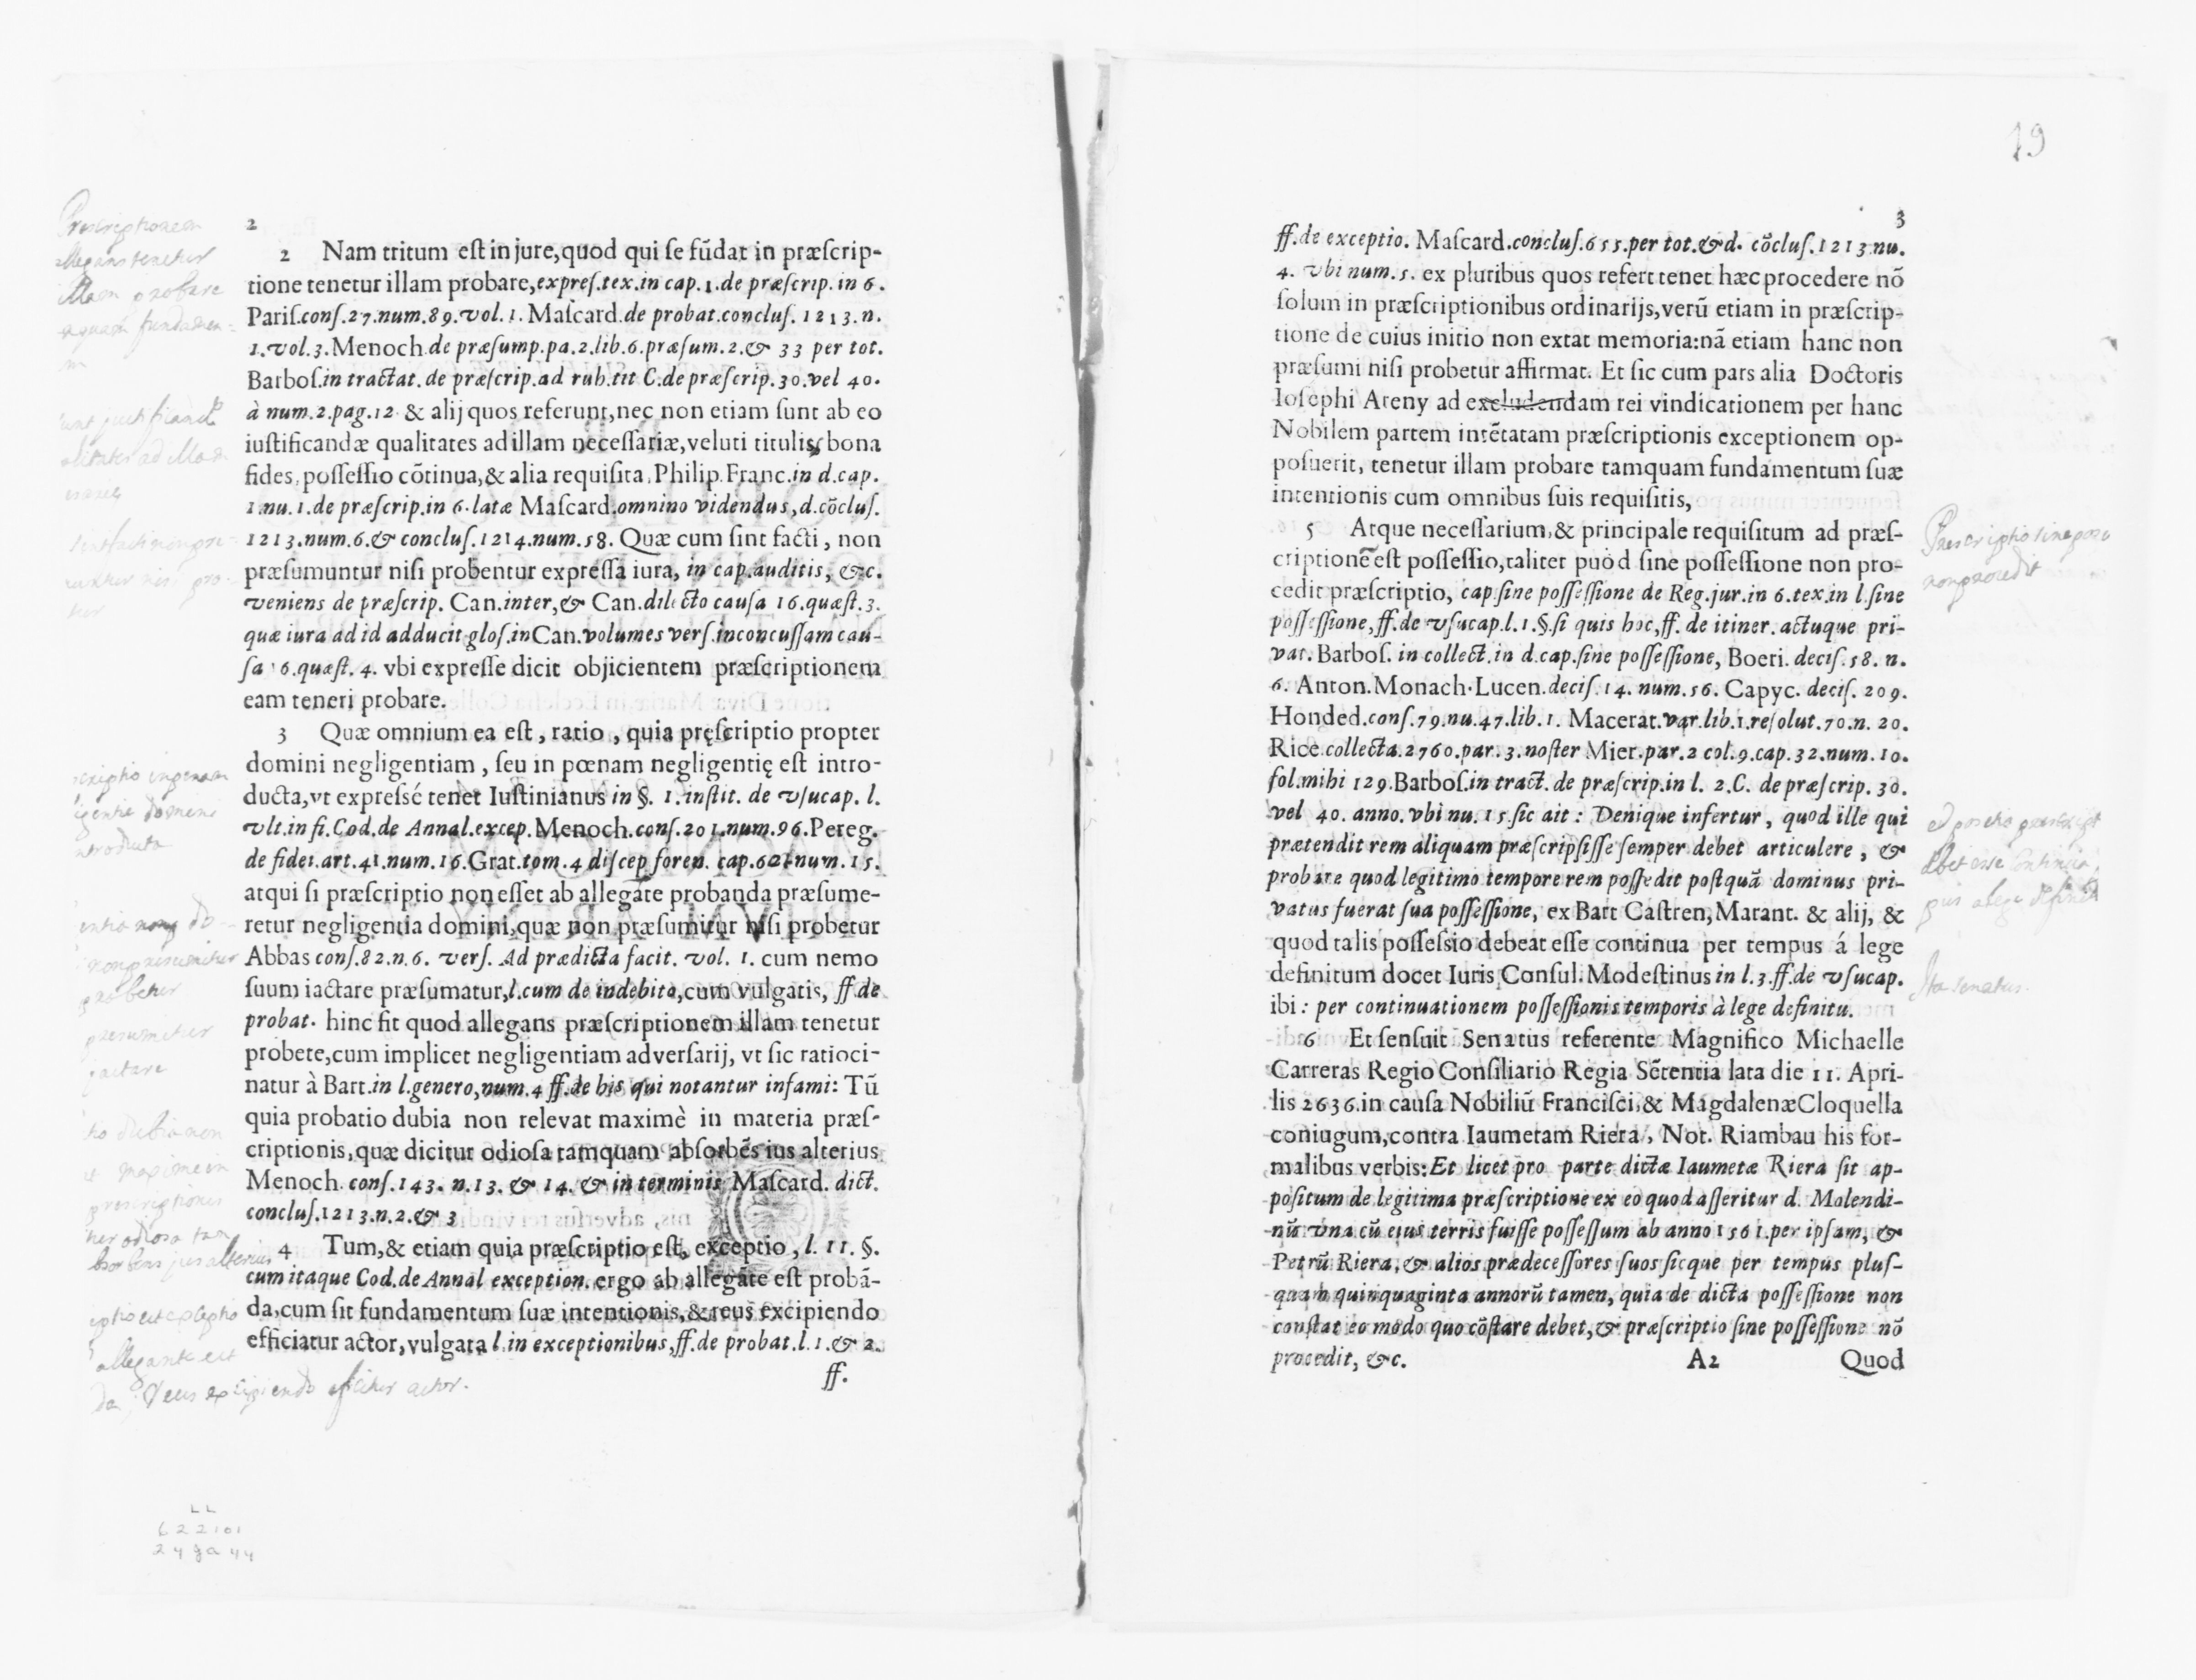 2
2 Nam tritum est in jure, quod qui se fūdat in præscrip-
tione tenetur illam probare, expres. tex. in cap. 1. de præscrip. in 6.
Paris. cons. 27. num. 89. vol. 1. Mascard. de probat. conclus. 1213. n.
1. vol. 3. Menoch. de præsump. pa. 2. lib. 6. præsum. 2. & 33 per tot.
Barbos. in tractat. de præscrip. ad rub. tit C. de præscrip. 30. vel 40.
à num. 2. pag. 12 & alij quos referunt, nec non etiam sunt ab eo
iustificandæ qualitates ad illam necessariæ, veluti titulis, bona
fides, possessio cōtinua, & alia requisita, Philip. Franc. in d. cap.
1. nu. 1. de præscrip. in 6. latæ Mascard. omnino videndus, d. cōclus.
1213. num. 6. & conclus. 1214. num. 58. Quæ cum sint facti, non
præsumuntur nisi probentur expressa iura, in cap. auditis, &c.
veniens de præscrip. Can. inter, & Can. dilecto causa 16. quæst. 3.
quæ iura ad id adducit glos. in Can. volumes vers. inconcussam cau-
sa 6. quæst. 4. vbi expresse dicit objicientem præscriptionem
eam teneri probare.
3 Quæ omnium ea est, ratio, quia pręscriptio propter
domini negligentiam, seu in pœnam negligentię est intro-
ducta, vt expressé tenet Iustinianus in §. 1. instit. de vsucap. l.
vlt. in fi. Cod. de Annal. excep. Menoch. cons. 201. num. 96. Pereg.
de fidei. art. 41. num. 16. Grat. tom. 4 discep foren. cap. 621. num. 15.
atqui si præscriptio non esset ab allegāte probanda præsume-
retur negligentia domini, quæ non præsumitur nisi probetur
Abbas cons. 82. n. 6. vers. Ad prædicta facit. vol. 1. cum nemo
suum iactare præsumatur, l. cum de indebito, cum vulgatis, ff de
probat. hinc fit quod allegans præscriptionem illam tenetur
probete, cum implicet negligentiam adversarij, vt sic ratioci-
natur à Bart. in l. genero, num. 4 ff. de his qui notantur infami: Tū
quia probatio dubia non relevat maximè in materia præs-
criptionis, quæ dicitur odiosa tamquam absorbēs ius alterius
Menoch. cons. 143. n. 13. & 14. & in terminis Mascard. dict.
conclus. 1213. n. 2. & 3
4 Tum, & etiam quia præscriptio est, exceptio, l. 11. §.
cum itaque Cod. de Annal exception. ergo ab allegāte est probā-
da, cum sit fundamentum suæ intentionis, & reus excipiendo
efficiatur actor, vulgata l. in exceptionibus, ff. de probat. l. 1. & 2.
ff.
Prescriptionem
allegans tenetur
illam probare
19
3
ff. de exceptio. Mascard. conclus. 655. per tot. & d. cōclus. 1213. nu.
4. vbi num. 5. ex pluribus quos refert tenet hæc procedere nō
solum in præscriptionibus ordinarijs, verū etiam in præscrip-
tione de cuius initio non extat memoria: nā etiam hanc non
præsumi nisi probetur affirmat. Et sic cum pars alia Doctoris
Iosephi Areny ad excludendam rei vindicationem per hanc
Nobilem partem intētatam præscriptionis exceptionem op-
posuerit, tenetur illam probare tamquam fundamentum suæ
intentionis cum omnibus suis requisitis,
5 Atque necessarium, & principale requisitum ad præs-
criptionē est possessio, taliter puòd sine possessione non pro-
cedit præscriptio, cap. sine possessione de Reg. jur. in 6. tex. in l. sine
possessione, ff. de vsucap. l. 1. §. si quis hoc, ff. de itiner. actuque pri-
vat. Barbos. in collect. in d. cap. sine possessione, Boeri. decis. 58. n.
6. Anton. Monach. Lucen. decis. 14. num. 56. Capyc. decis. 209.
Honded. cons. 79. nu. 47. lib. 1. Macerat. var. lib. 1. resolut. 70. n. 20.
Rice. collecta. 2760. par. 3. noster Mier. par. 2 col. 9. cap. 32. num. 10.
fol. mihi 129. Barbos. in tract. de præscrip. in l. 2. C. de præscrip. 30.
vel 40. anno. vbi nu. 15. sic ait: Denique infertur, quod ille qui
prætendit rem aliquam præscripsisse semper debet articulere, &
probare quod legitimo tempore rem possedit postquā dominus pri-
vatus fuerat sua possessione, ex Bart Castren, Marant. & alij, &
quod talis possessio debeat esse continua per tempus á lege
definitum docet Iuris Consul. Modestinus in l. 3. ff. de vsucap.
ibi: per continuationem possessionis temporis à lege definitu.
6 Et sensuit Senatus referente Magnifico Michaelle
Carreras Regio Consiliario Regia Sētentia lata die 11. Apri-
lis 2636. in causa Nobiliū Francisci, & Magdalenæ Cloquella
coniugum, contra Iaumetam Riera, Not. Riambau his for-
malibus verbis: Et licet pro parte dictæ Iaumetæ Riera sit ap-
positum de legitima præscriptione ex eo quod asseritur d. Molendi-
nū vna cū ejus terris fuisse possessum ab anno 1561. per ipsam, &
Petrū Riera, & alios prædecessores suos sicque per tempus plus-
quam quinquaginta annorū tamen, quia de dicta possessione non
constat eo modo quo cōstare debet, & præscriptio sine possessione nō
procedit, &c. A2 Quod
Prescriptio sine
non procedit
Ita senatus